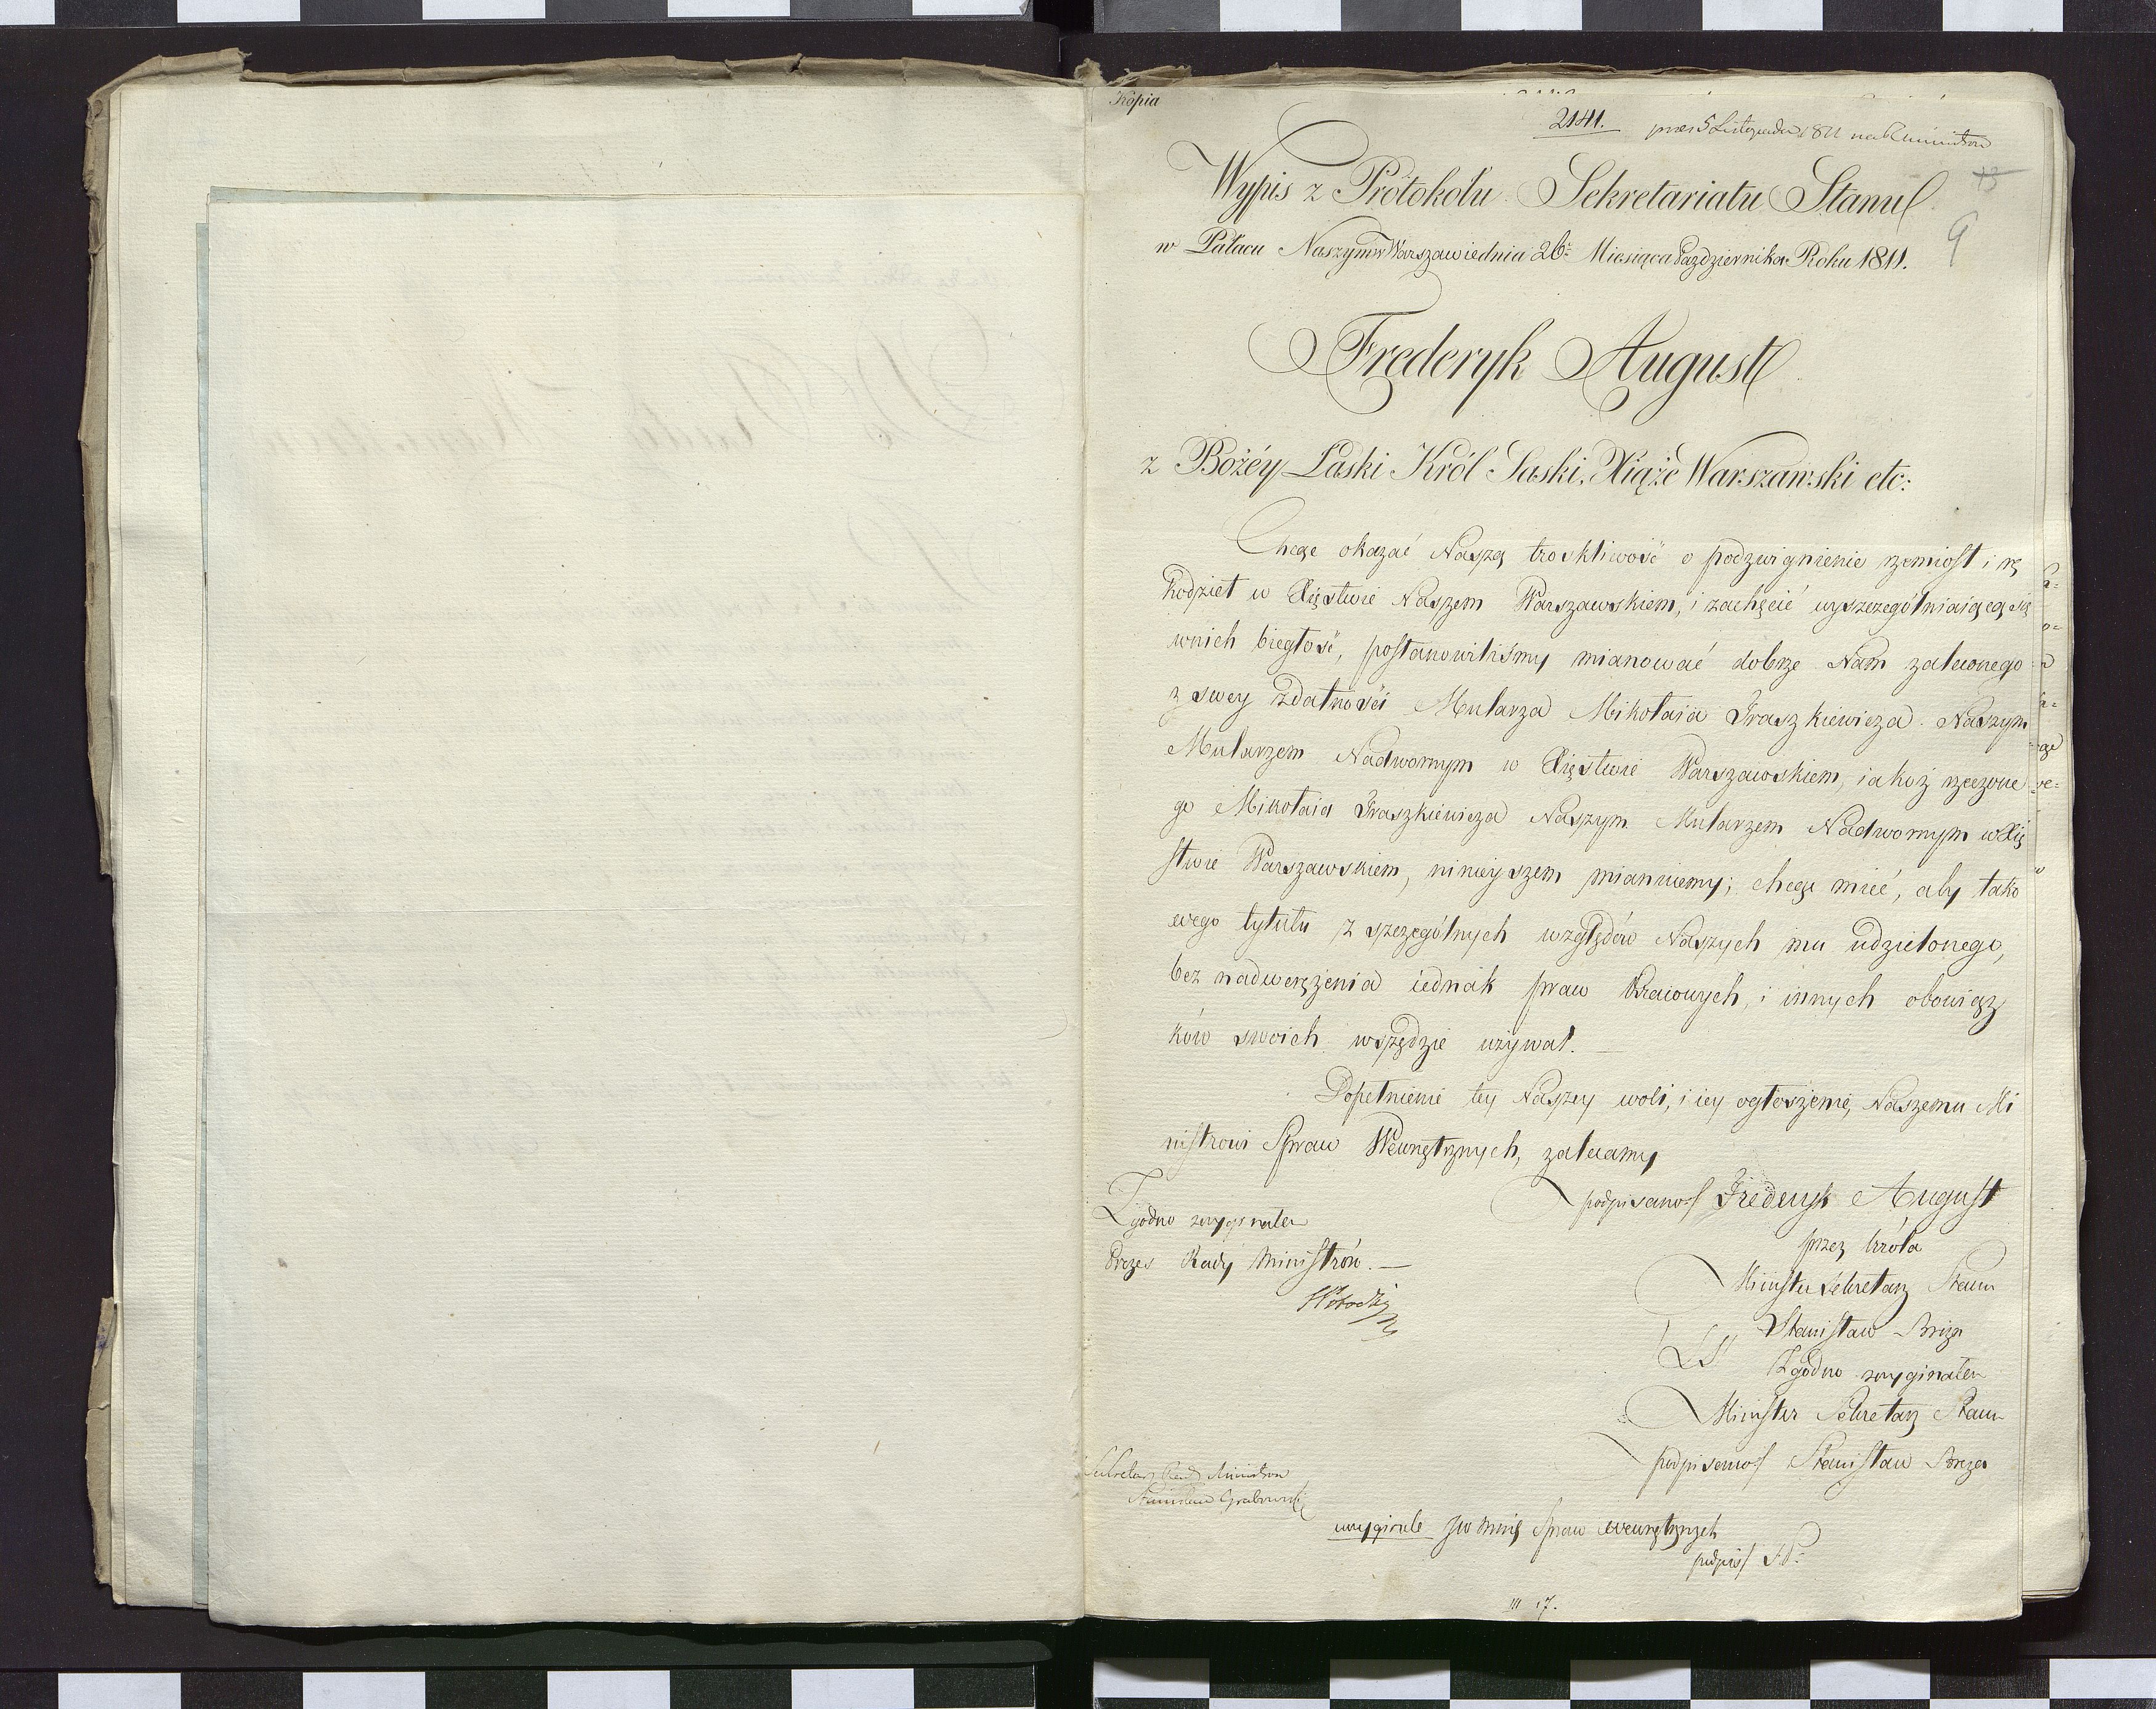 Kopia
2141. prez 5 Listopada 1811 na R Ministrow
13
9
Wypis z Protokółu Sekretariatu Stanu
w Pałacu Naszym w Warszawie dnia 26: Miesiąca Października Roku 1811.
Frederyk August
z Bożéy Łaski Król Saski, Xiąże Warszawski etc:
Chcąc okazać Naszą troskliwość o podzwignienie rzemiosł i rę
kodzieł w Xięstwie Naszem Warszawskiem, i zachęcić wyszczególniaiącą się
wnich biegłość, postanowiliśmy mianować dobrze Nam zaleconego
z swey zdatności Mularza Mikołaia Jraszkiewicza Naszym
Mularzem Nadwornym w Xięstwie Warszawskiem, iakoż rzeczone
go Mikołaia Jraszkiewicza Naszym Mularzem Nadwornym w Xię
stwie Warszawskiem, ninieyszem mianuiemy; chcąc mieć, aby tako
wego tytułu z szczególnych względów Naszych mu udzielonego,
bez nadwerężenia iednak praw Kraiowych, i innych obowiąz
ków swoich wszędzie używał.
Dopełnienie tey Naszey woli, i iey ogłoszenie, Naszemu Mi
nistrowi Spraw Wewnętrznych, zalecamy
podpisano/ Frederyk August
przez Króla
Minister Sekretarz Stanu
Stanisław Breza
LS
Zgodno z oryginałem
Minister Sekretarz Stanu
podpisano/ Stanisław Breza
Zgodno z oryginałem
Prezes Rady Ministrów.
Sekretarz Rady Ministrow
Stanisław Grabowski
w oryginale Spraw wewnętrznych
podpis/
III 17.